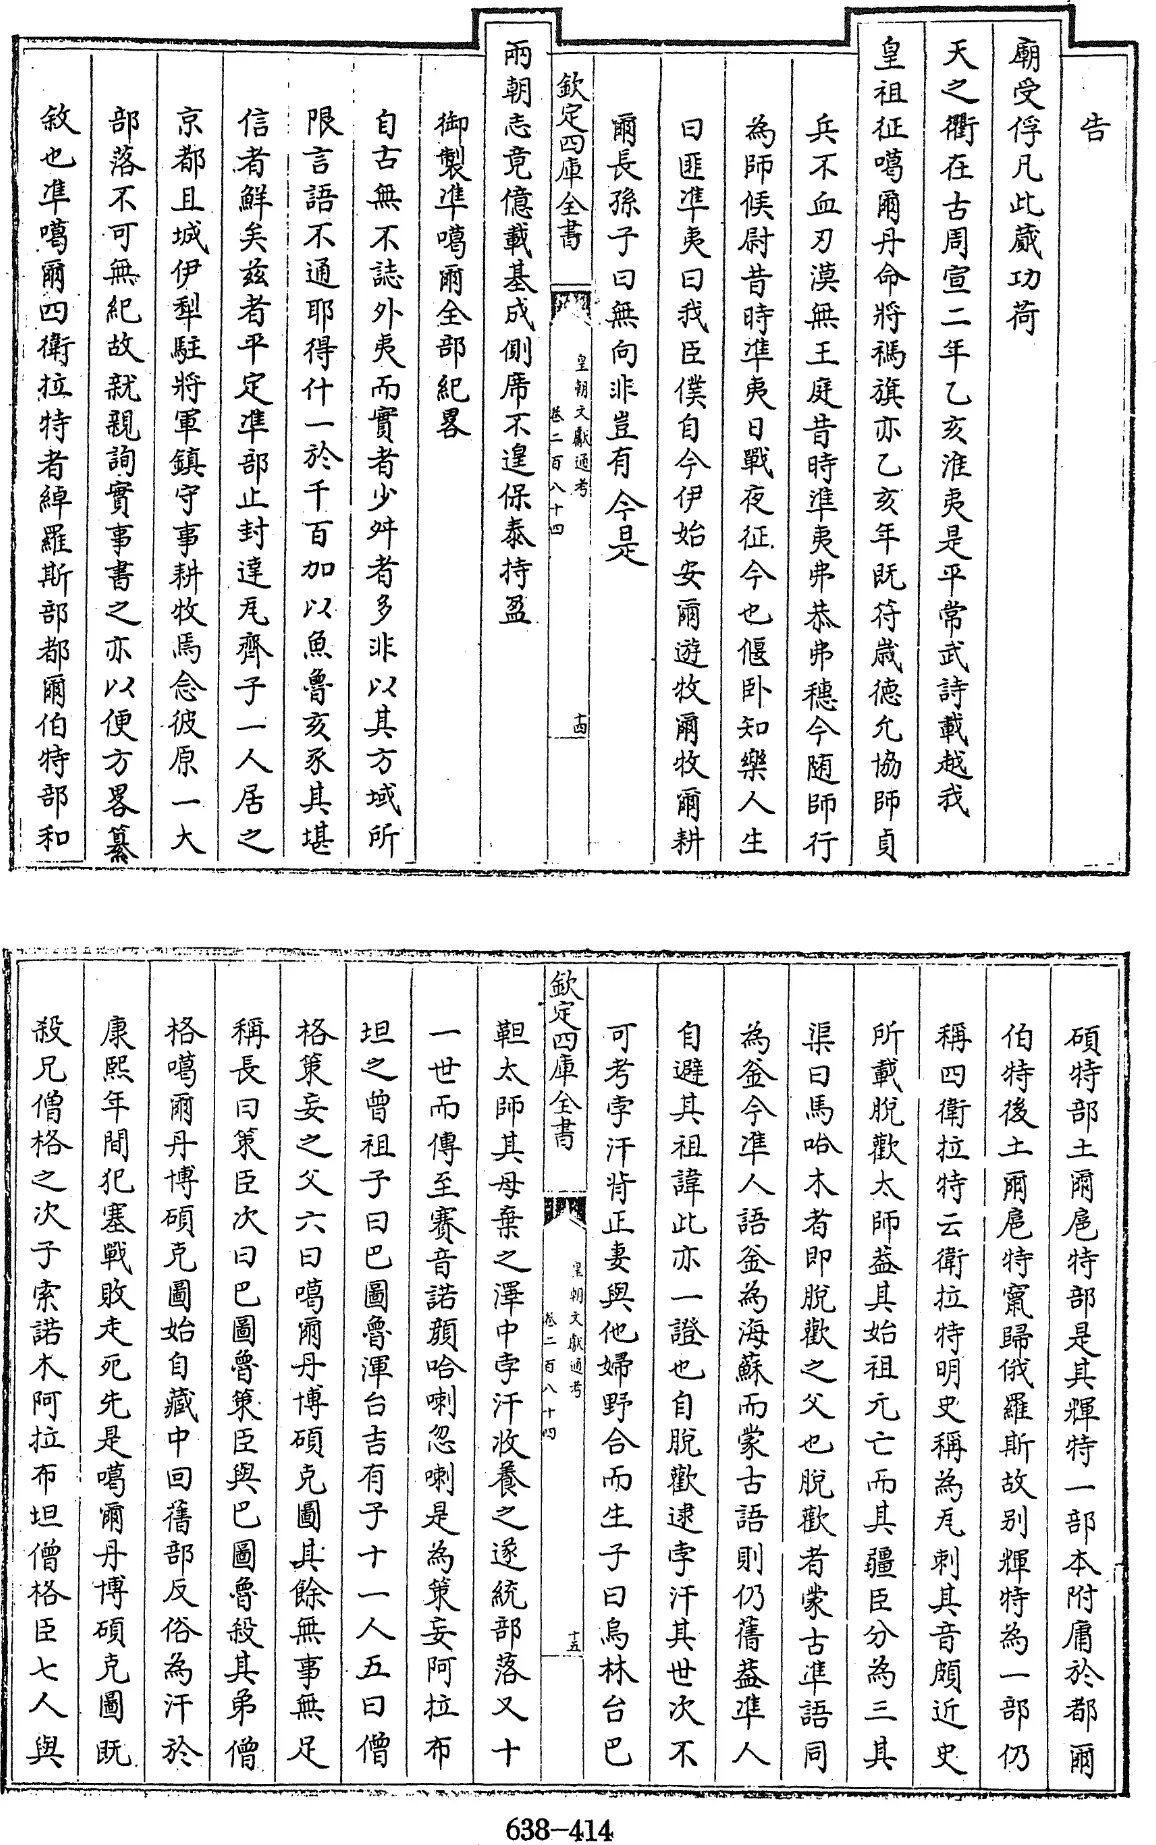 告
廟受俘凡此蕆功荷
天之衢在古周宣二年乙亥淮夷是平常武詩載越我
皇祖征噶爾丹命將禡旗亦乙亥年既符嵗德允協師貞
兵不血刃漠無王庭昔時準夷弗恭弗穗今随師行
為師候尉昔時準夷日戰夜征今也偃卧知樂人生
曰匪準夷曰我臣僕自今伊始安爾遊牧爾牧爾耕
爾長孫子曰無向非豈有今是
欽定四庫全書
皇朝文獻通考
卷二百八十四
十四
兩朝志竟億載基成側席不遑保泰持盈
御製準噶爾全部紀畧
自古無不誌外夷而實者少舛者多非以其方域所
限言語不通耶得什一於千百加以魚魯亥豕其堪
信者鮮矣兹者平定準部止封達瓦齊子一人居之
京都且城伊犁駐將軍鎮守事耕牧焉念彼原一大
部落不可無紀故就親詢實事書之亦以便方畧纂
敘也準噶爾四衛拉特者綽羅斯部都爾伯特部和
碩特部土爾扈特部是其輝特一部本附庸於都爾
伯特後土爾扈特竄歸俄羅斯故别輝特為一部仍
稱四衛拉特云衛拉特明史稱為瓦剌其音頗近史
所載脫歡太師葢其始祖元亡而其疆臣分為三其
渠曰馬哈木者即脫歡之父也脫歡者蒙古準語同
為釜今準人語釜為海蘇而蒙古語則仍舊葢準人
自避其祖諱此亦一證也自脫歡逮孛汗其世次不
可考孛汗背正妻與他婦野合而生子曰烏林台巴
欽定四庫全書
皇朝文獻通考
卷二百八十四
十五
靼太師其母棄之澤中孛汗收養之遂統部落又十
一世而傳至賽音諾顔哈喇忽喇是為策妄阿拉布
坦之曾祖子曰巴圖魯渾台吉有子十一人五曰僧
格策妄之父六曰噶爾丹博碩克圖其餘無事無足
稱長曰策臣次曰巴圖魯策臣與巴圖魯殺其弟僧
格噶爾丹博碩克圖始自藏中回舊部反俗為汗於
康熙年間犯塞戰敗走死先是噶爾丹博碩克圖既
殺兄僧格之次子索諾木阿拉布坦僧格臣七人與
638-414